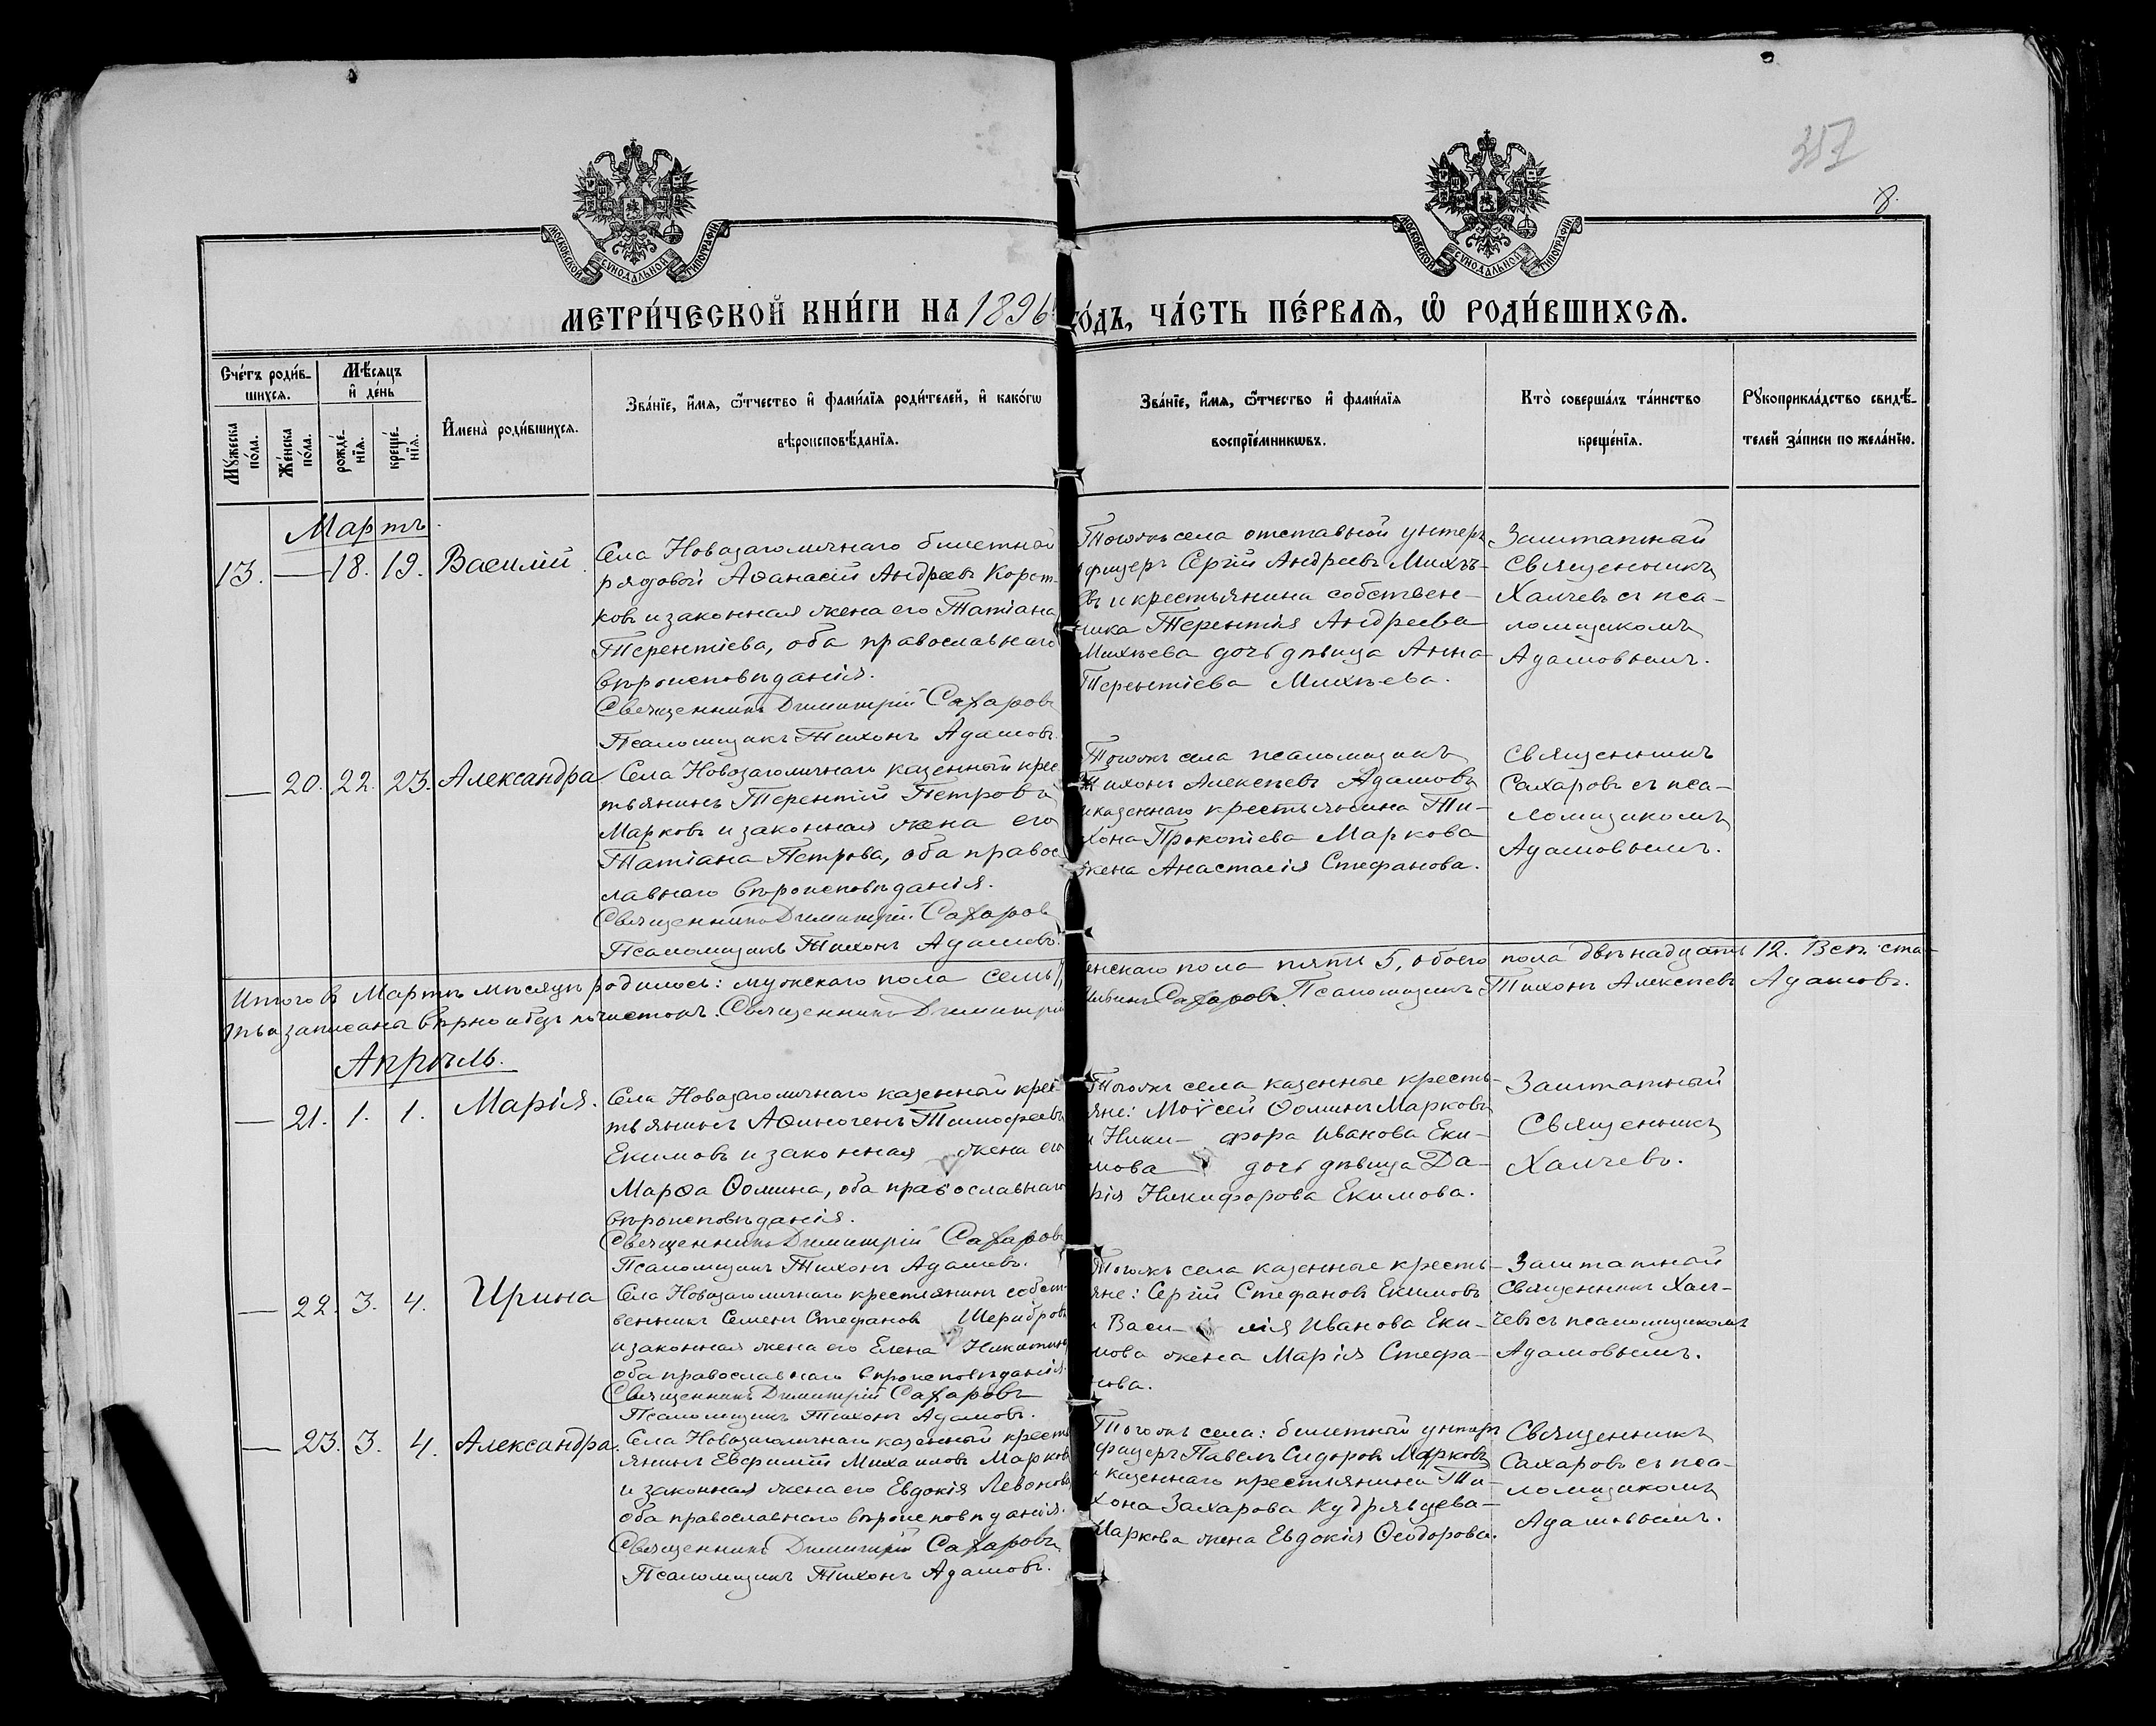 357
8.
МОСКОВСКОЙ СѴНОДАЛЬНОЙ ТИПОГРАФІИ
МОСКОВСКОЙ СѴНОДАЛЬНОЙ ТИПОГРАФІИ
МЕТРИ́ЧЕСКОЙ КНИ́ГИ НА 1896 ГО́ДЪ, ЧА́СТЬ ПЕ́РВАѦ, Ѡ РОДИ́ВШИХСѦ.
Сче́тъ роди́в-
шихсѧ.
Мꙋжеска по́ла.
Же́нска по́ла.
Мѣ́сѧцъ
и де́нь
рожде́-
нїѧ.
креще́-
нїѧ.
Имена̀ роди́вшихсѧ.
Зва́нїе, и́мѧ, ѻ҆́тчество и фами́лїѧ роди́телей, и како́гѡ
вѣроисповѣ́данїѧ.
Зва́нїе, и́мѧ, ѻ҆́тчество и фами́лїѧ
воспрїе́мникѡвъ.
Кто̀ соверша́лъ та́инство
креще́нїѧ.
Рꙋкоприкла́дство свидѣ́-
телей за́писи по жела́нїю.
Мартъ.
13. — 18. 19. Василій.
Села Новозаголичнаго билетный
рядовой Аѳанасій Андреевъ Корот-
ковъ и законная жена его Татіана
Терентіева, оба православнаго
вѣроисповѣданія.
Священникъ Димитрій Сахаровъ
Псаломщикъ Тихонъ Адамовъ.
Тогожъ села отставной унтеръ
офицеръ Сергій Андреевъ Михѣ-
евъ и крестьянина собствен-
ника Терентія Андреева
Михѣева дочь дѣвица Анна
Терентіева Михѣева.
Заштатный
Священникъ
Халчевъ съ пса-
ломщикомъ
Адамовымъ.
— 20. 22. 23. Александра
Села Новозаголичнаго казенный крес
тьянинъ Терентій Петровъ
Марковъ и законная жена его
Татіана Петрова, оба правос
лавнаго вѣроисповѣданія.
Священникъ Димитрій Сахаровъ
Псаломщикъ Тихонъ Адамовъ.
Тогожъ села псаломщикъ
Тихонъ Алексѣевъ Адамовъ
и казеннаго крестьянина Ти-
хона Прокопіева Маркова
жена Анастасія Стефанова.
Священникъ
Сахаровъ съ пса-
ломщикомъ
Адамовымъ.
Итого въ Мартѣ мѣсяцѣ родилось: мужскаго пола семь 7, женскаго пола пять 5, обоего пола двѣнадцать 12. Всѣ ста-
тьи записаны вѣрно и безъ Священникъ Димитрій Сахаровъ. Псаломщикъ Тихонъ Алексѣевъ Адамовъ.
Апрѣль.
— 21. 1. 1. Марія.
Села Новозаголичнаго казенный крес
тьянинъ Аѳиногенъ Тимоѳеевъ
Екимовъ и законная жена его
Марѳа Ѳомина, оба православнаго
вѣроисповѣданія.
Священникъ Димитрій Сахаровъ
Псаломщикъ Тихонъ Адамовъ.
Тогожъ села казенные кресть-
яне: Моѵсей Ѳоминъ Марковъ
и Ники- фора Иванова Еки-
мова дочь дѣвица Да-
рія Никифорова Екимова.
Заштатный
Священникъ
Халчевъ.
— 22. 3. 4. Ирина
Села Новозаголичнаго крестьянинъ собст-
венникъ Семенъ Стефановъ
и законная жена его Елена Никитина
оба православнаго вѣроисповѣданія.
Священникъ Димитрій Сахаровъ
Псаломщикъ Тихонъ Адамовъ.
Тогожъ села казенные кресть-
яне: Сергій Стефановъ Екимовъ
и Васи- лія Иванова Еки-
мова жена Марія Стефа-
нова.
Заштатный
Священникъ Хал-
чевъ съ псаломщикомъ
Адамовымъ.
— 23. 3. 4. Александра.
Села Новозаголичнаго казенный кресть
янинъ Евфимій Михаиловъ Марковъ
и законная жена его Евдокія Левонова
оба православнаго вѣроисповѣданія.
Священникъ Димитрій Сахаровъ
Псаломщикъ Тихонъ Адамовъ.
Тогожъ села: билетный унтеръ
офицеръ Павелъ Сидоровъ Марковъ
и казеннаго крестьянина Ти-
хона Захарова Кудрявцева-
Маркова жена Евдокія Ѳеодорова.
Священникъ
Сахаровъ съ пса-
ломщикомъ
Адамовымъ.